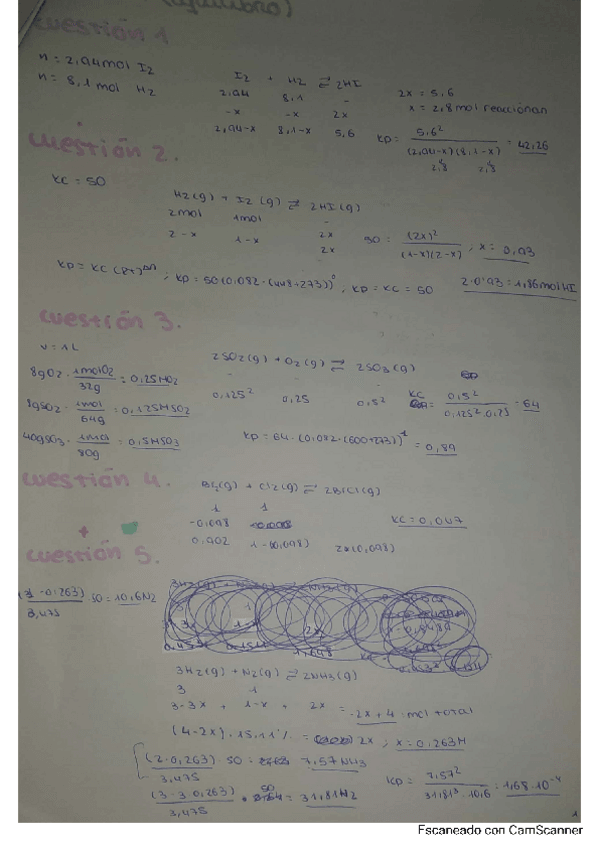 (equilibrio)
cuestión 1
n = 2,94 mol I2
n = 8,1 mol H2
I2 + H2 ⇌ 2HI
2,94 8,1 -
-x -x 2x
2,94-x 8,1-x 5,6
2x = 5,6
x = 2,8 mol reaccionan
Kp = 5,6² / (2,94-x)(8,1-x) = 42,26
2,8 2,8
cuestión 2.
KC = 50
H2(g) + I2(g) ⇌ 2HI(g)
2mol 1mol -
2-x 1-x 2x
2x
50 = (2x)² / (1-x)(2-x) ; x = 0,93
Kp = KC (RT)^Δn ; Kp = 50(0,082·(448+273))⁰, Kp = KC = 50
2·0'93 = 1,86 mol HI
cuestión 3.
V = 1L
8gO2 · 1molO2 / 32g = 0,25MO2
8gSO2 · 1mol / 64g = 0,125MSO2
40gSO3 · 1mol / 80g = 0,5MSO3
2SO2(g) + O2(g) ⇌ 2SO3(g)
0,125² 0,25 0,5²
KC = 0,5² / 0,125²·0,25 = 64
Kp = 64·(0,082·(600+273))^-1 = 0,89
cuestión 4.
Br2(g) + Cl2(g) ⇌ 2BrCl(g)
1 1
-0,098
0,902 1-(0,098) 2x(0,098)
KC = 0,047
cuestión 5.
(1-0,263) / 3,475 50 = 10,6N2
3H2(g) + N2(g) ⇌ 2NH3(g)
3 1
3-3x + 1-x + 2x = -2x+4 mol total
(4-2x)·15,11% = 2x ; x = 0,263M
(2·0,263) / 3,475 50 = 7,57NH3
(3-3·0,263) / 3,475 · 50 = 31,81H2
Kp = 7,57² / 31,81³·10,6 = 1,68·10⁻⁴
1
Escaneado con CamScanner